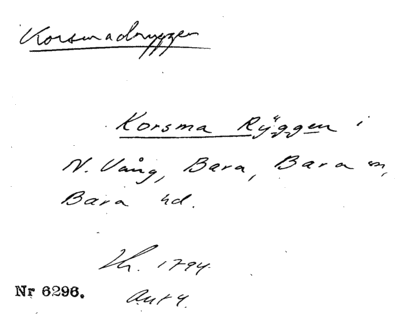 Korsmadryggen
Korsma Rÿggen i
N. Vång, Bara, Bara sn,
Bara hd.
1794.
Nr 6296.